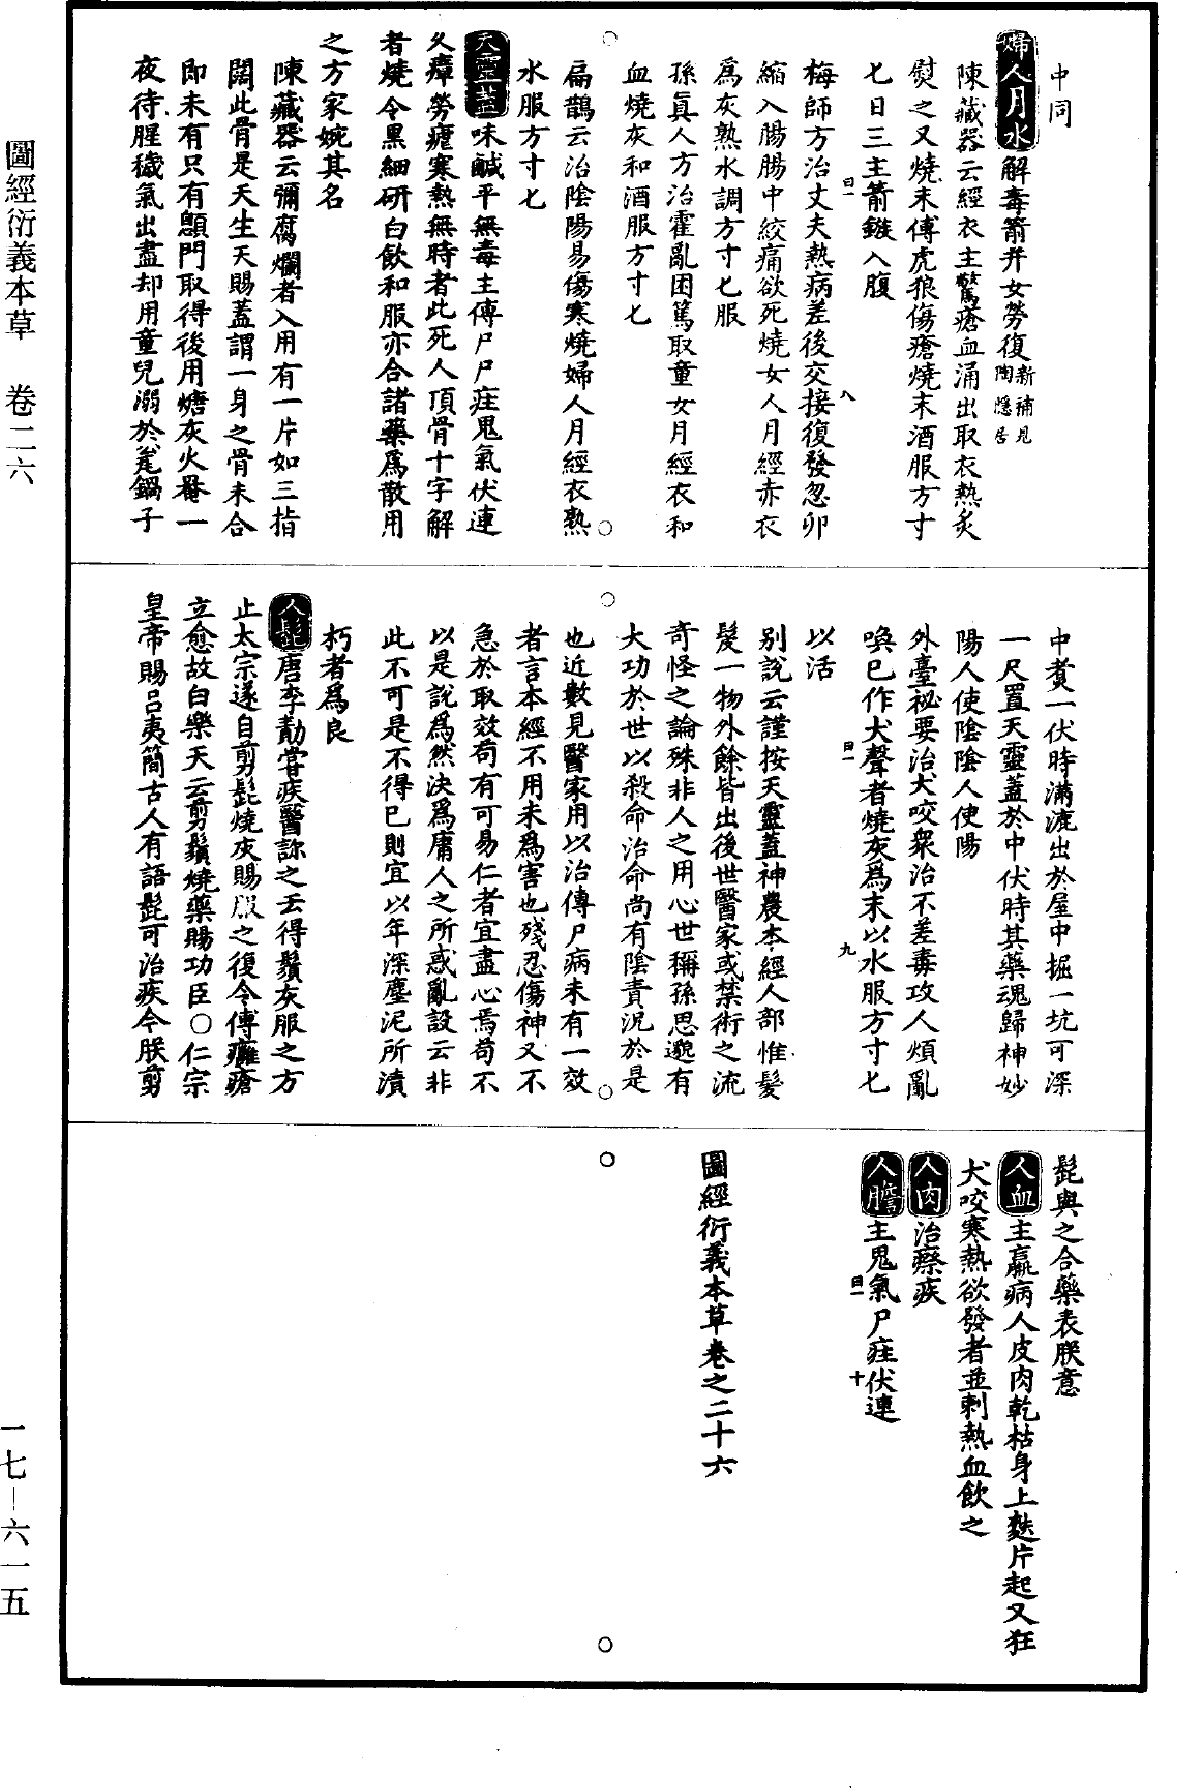 中同
婦人月水解毒箭并女勞復新補見陶隱居
陳藏器云經衣主驚瘡血涌出取衣熱炙
熨之又燒末傅虎狼傷瘡燒末酒服方寸
七日三主箭鏃入腹
梅師方治丈夫熱病差後交接復發忽卯
縮入腸腸中絞痛欲死燒女人月經赤衣
爲灰熟水調方寸七服
孫真人方治霍亂困篤取童女月經衣和
血燒灰和酒服方寸七
扁鵲云治陰陽易傷寒燒婦人月經衣熟
水服方寸七
天靈蓋味鹹平無毒主傳尸尸疰鬼氣伏連
久瘴勞瘧寒熱無時者此死人頂骨十字解
者燒令黑細研白飲和服亦合諸藥爲散用
之方家婉其名
陳藏器云彌腐爛者入用有一片如三指
闊此骨是天生天賜蓋謂一身之骨未合
即未有只有顖門取得後用煻灰火罨一
夜待腥穢氣出盡却用童兒溺於甆鍋子
中煑一伏時滿漉出於屋中掘一坑可深
一尺置天靈蓋於中伏時其藥魂歸神妙
陽人使陰陰人使陽
外臺祕要治犬咬衆治不差毒攻人煩亂
喚已作犬聲者燒灰爲末以水服方寸七
以活
别說云謹按天靈蓋神農本經人部惟髮
髲一物外餘皆出後世醫家或禁術之流
奇怪之論殊非人之用心世稱孫思邈有
大功於世以殺命治命尚有陰責況於是
也近數見醫家用以治傳尸病未有一效
者言本經不用未爲害也殘忍傷神又不
急於取效苟有可易仁者宜盡心焉苟不
以是說爲然決爲庸人之所惑亂設云非
此不可是不得已則宜以年深塵泥所漬
朽者爲良
人髭唐李勣甞疾醫診之云得鬚灰服之方
止太宗遂自剪髭燒灰賜服之復令傅癰瘡
立愈故白樂天云剪鬚燒藥賜功臣○仁宗
皇帝賜吕夷簡古人有語髭可治疾今朕剪
髭與之合藥表朕意
人血主羸病人皮肉乾枯身上麩片起又狂
犬咬寒熱欲發者並刺熱血飲之
人肉治瘵疾
人膽主鬼氣尸疰伏連
圖經衍義本草卷之二十六
曰一
八
曰一
九
曰一
十
圖經衍義本草 卷二六
一七—六一五